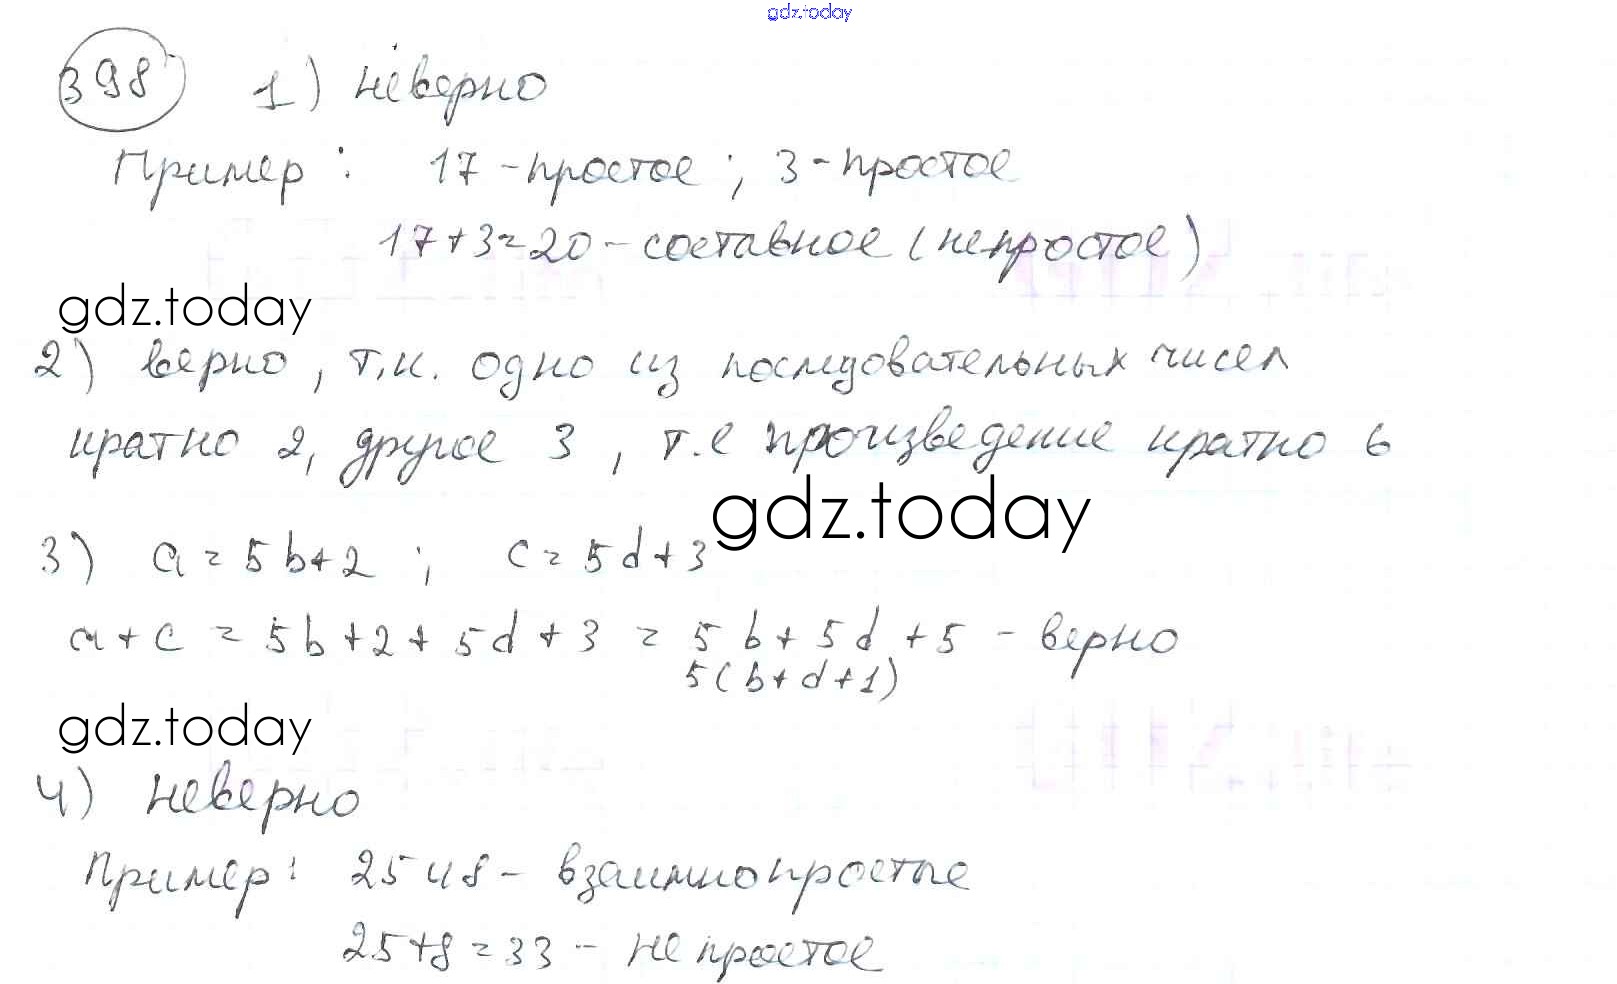 gdz.today
398 1) неверно
Пример: 17 - простое ; 3 - простое
17+3=20 - составное (непростое)
gdz.today
2) верно, т.к. одно из последовательных чисел
кратно 2, другое 3, т.е произведение кратно 6
gdz.today
3) a = 5b+2 ; c = 5d+3
a+c = 5b+2+5d+3 = 5b+5d+5 - верно
5(b+d+1)
gdz.today
4) неверно
Пример: 25 и 8 - взаимнопростые
25+8=33 - не простое